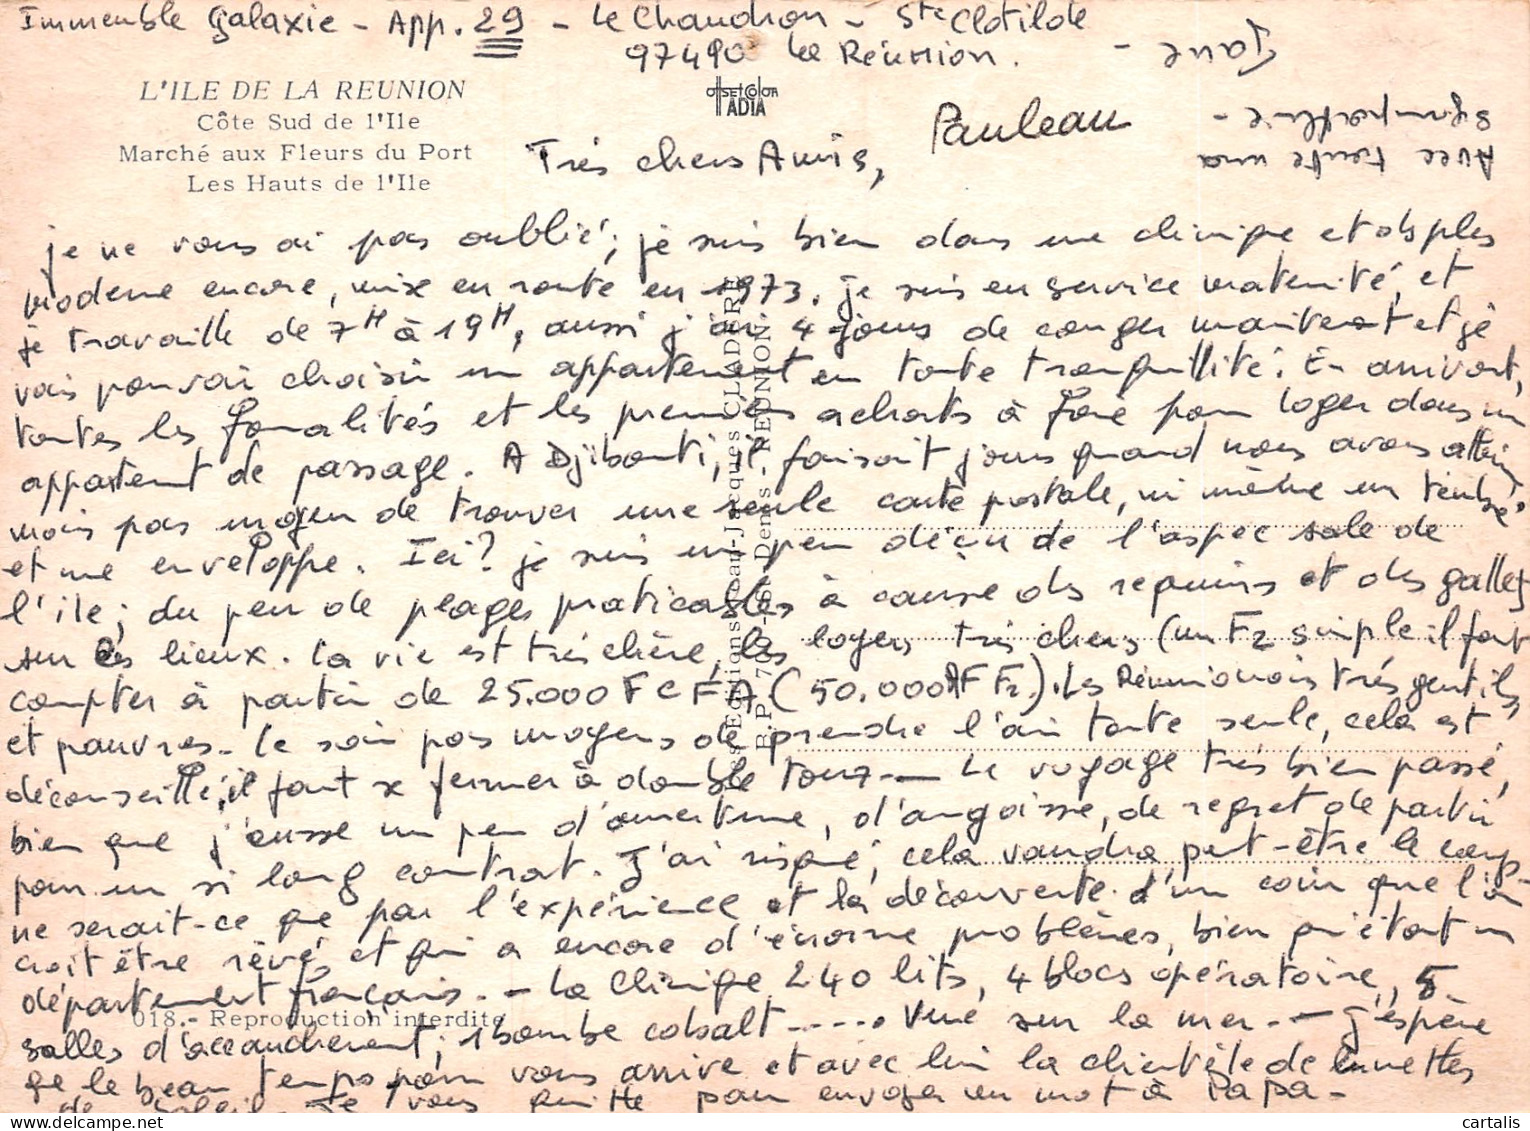 Immeuble Galaxie - App. 29 - Le Chaudron - Ste Clotilde
97490 La Réunion.
L'ILE DE LA REUNION
Côte Sud de l'Ile
Marché aux Fleurs du Port
Les Hauts de l'Ile
OFFSET COLOR
ADIA
Pauleau
Très chers Amis,
je ne vous ai pas oublié; je suis bien dans une clinique et ds plus
moderne encore, mise en route en 1973. Je suis en service maternité, et
je travaille de 7H à 19H, aussi j'ai 4 jours de conger maintenat et je
vais pouvoir choisir un appartement en toute tranquillité. En arrivant,
toutes les formalités et les premiers achats à faire pour loger dans un
appartement de passage. A Djibouti, il faisait jour quand nous avons atterri
mais pas moyen de trouver une seule carte postale, ni même un timbre
et une enveloppe. Ici? je suis un peu déçu de l'aspec sale de
l'île; du peu de plages praticables à cause des requins et des gallets
sur les lieux. La vie est très chère, les loyers très chers (un F2 simple il faut
compter à partir de 25.000 F C F A (50.000 A F Fr.). Les Réunionnais très gentils
et pauvres - Le soir pas moyens de prendre l'air toute seule, cela est
déconseillé, il faut se fermer à double tour - Le voyage très bien passé,
bien que j'eusse un peu d'amertume, d'angoisse, de regret de partir
pour un si long contrat. J'ai risqué, cela vaudra peut-être le coup -
ne serait-ce que par l'expérience et la découverte d'un coin que l'on
croit être rêvé et qui a encore d'énorme problèmes, bien qu'étant un
département français. - La Clinique 240 lits, 4 blocs opératoire, 5
salles d'accouchement, 1 bombe cobalt ..... Vue sur la mer - J'espère
que le beau temps pour vous arrive et avec lui la clientèle de lunettes
de soleil. Je vous quitte pour envoyer un mot à Papa -
Avec toute ma
sympathie -
Jane -
Les Editions Jean-Jacques CLADERE
B.P. 70 - St Denis - REUNION
018.- Reproduction interdite
cartalis